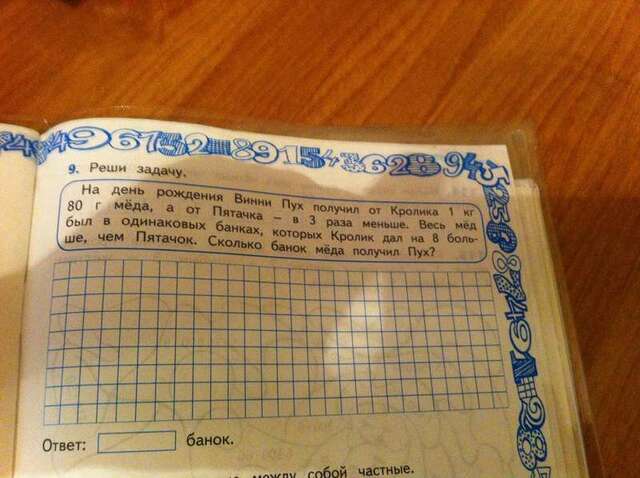 9. Реши задачу.
На день рождения Винни Пух получил от Кролика 1 кг
80 г мёда, а от Пятачка – в 3 раза меньше. Весь мёд
был в одинаковых банках, которых Кролик дал на 8 боль-
ше, чем Пятачок. Сколько банок мёда получил Пух?
Ответ: банок.
между собой частные.